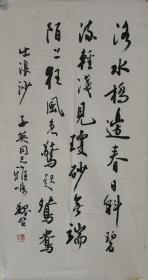 洛水橋邊春日斜碧
流輕淺見瓊砂無端
陌上狂風急驚起鴛鴦
出浪沙 同志雅嘱